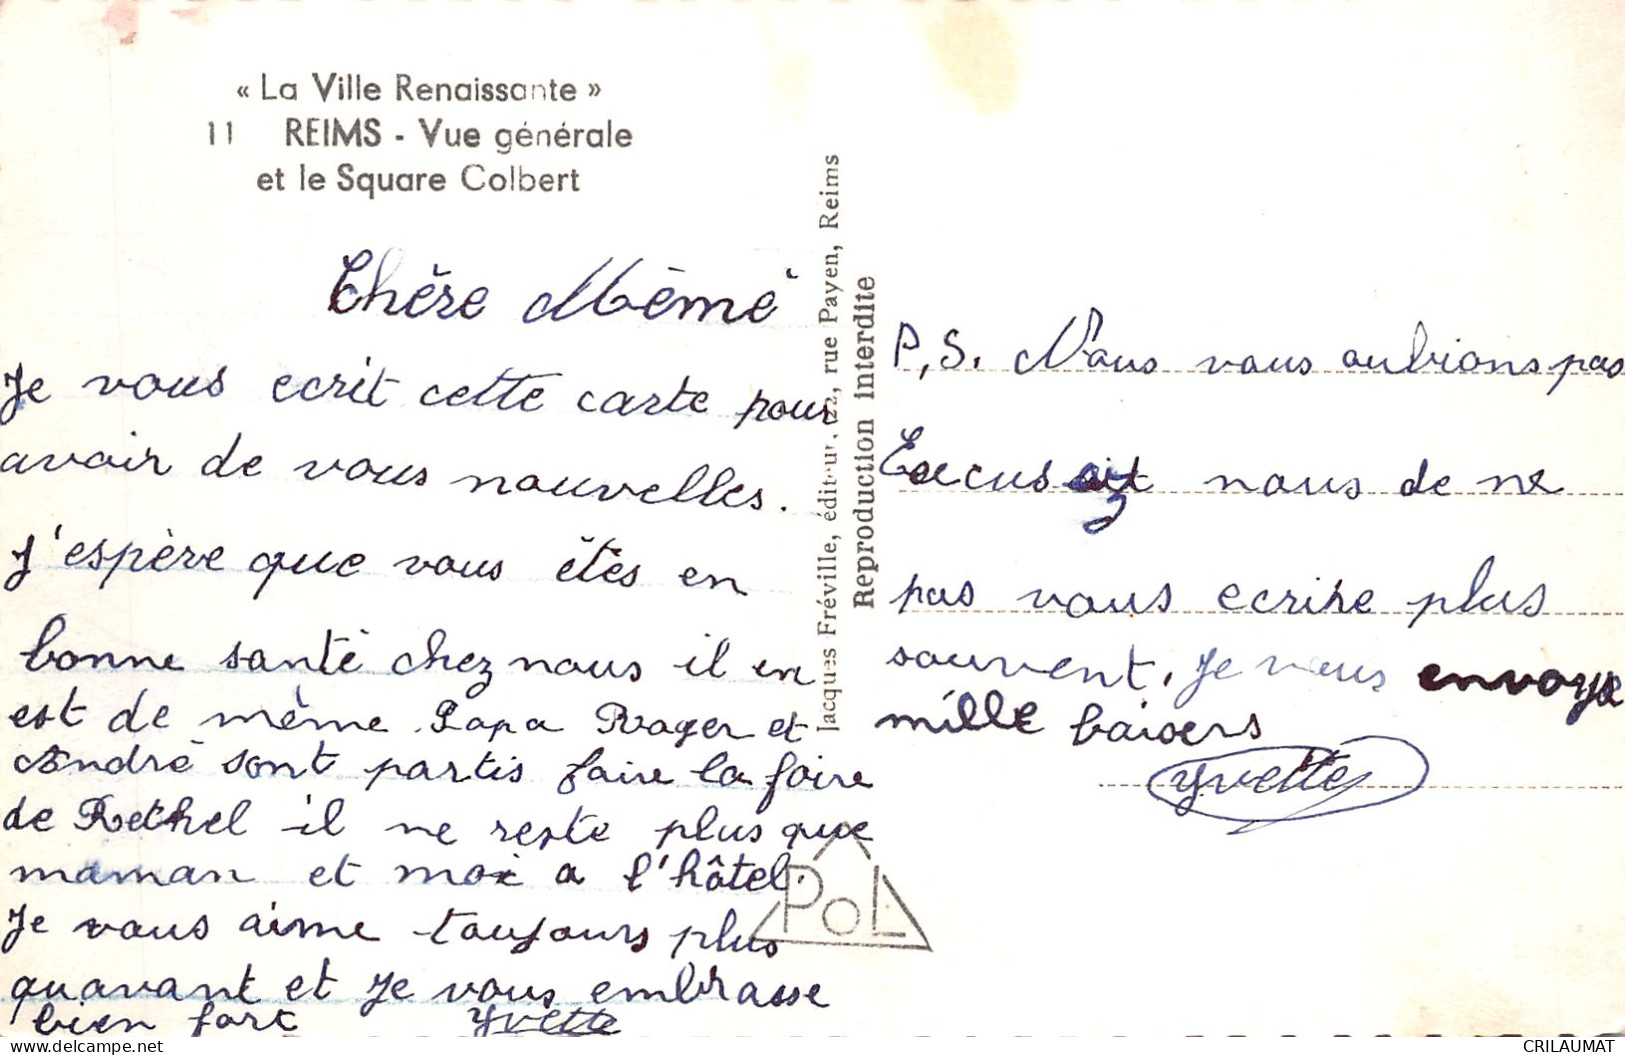 « La Ville Renaissante »
11 REIMS - Vue générale
et le Square Colbert
Chère Mémé
Je vous ecrit cette carte pour
avoir de vous nouvelles.
J'espère que vous êtes en
bonne santé chez nous il en
est de même. Papa Roger et
André sont partis faire la foire
de Rethel il ne reste plus que
maman et moi a l'hôtel.
Je vous aime toujours plus
quavant et je vous embrasse
bien fort Yvette
Jacques Fréville, éditeur, rue Payen, Reims
Reproduction interdite
P.S. Nous vous oublions pas
Excusait nous de ne
pas vous ecrire plus
souvent. Je vous envoye
mille baisers
Yvette
POL
CRILAUMAT